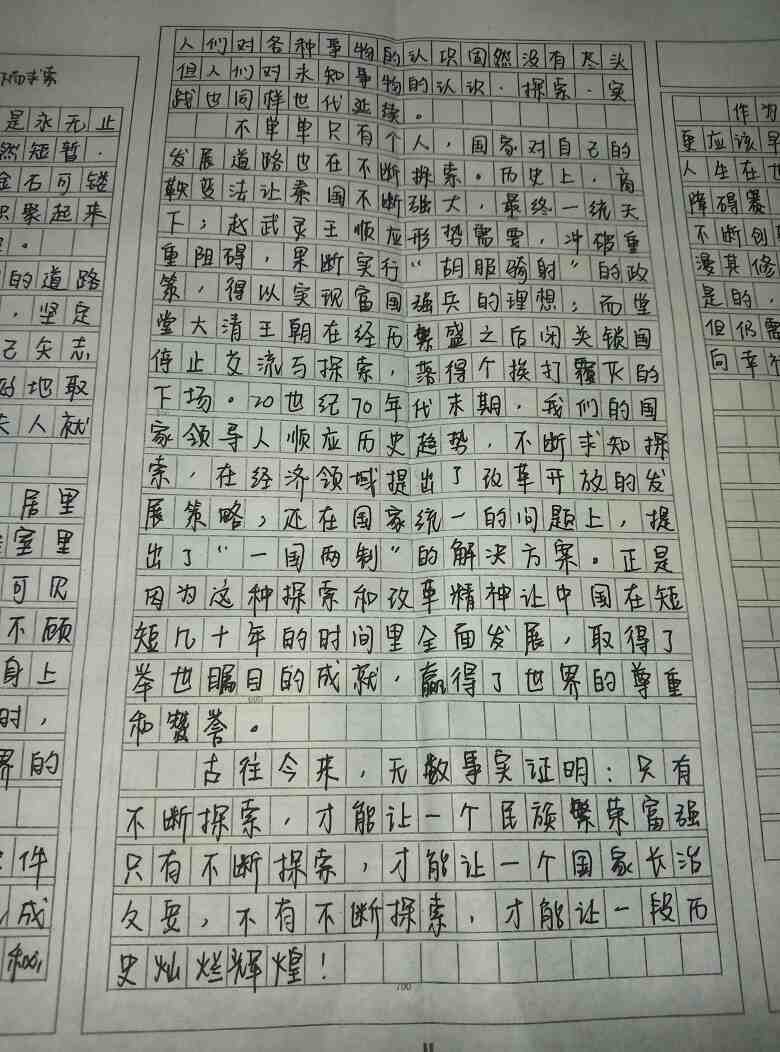 人们对各种事物的认识固然没有尽头
但人们对未知事物的认识、探索、实
践也同样世代延续。
不单单只有个人，国家对自己的
发展道路也在不断探索。历史上，商
鞅变法让秦国不断强大，最终一统天
下；赵武灵王顺应形势需要，冲破重
重阻碍，果断实行“胡服骑射”的政
策，得以实现富国强兵的理想；而堂
堂大清王朝在经历繁盛之后闭关锁国
停止交流与探索，落得个挨打覆灭的
下场。20世纪70年代末期，我们的国
家领导人顺应历史趋势，不断求知探
索，在经济领域提出了改革开放的发
展策略；还在国家统一的问题上，提
出了“一国两制”的解决方案。正是
因为这种探索和改革精神让中国在短
短几十年的时间里全面发展，取得了
举世瞩目的成就，赢得了世界的尊重
和赞誉。
古往今来，无数事实证明：只有
不断探索，才能让一个民族繁荣富强
只有不断探索，才能让一个国家长治
久安，不有不断探索，才能让一段历
史灿烂辉煌！
700
是永无止
然短暂.
金石可镂
积聚起来
。
的道路
，坚定
己矢志
的地取
夫人就
居里
室里
可见
不顾
身上
时，
界的
件
成
作为
更应该早
人生在世
障碍
不断创
漫其修
是的，
但仍需
向幸